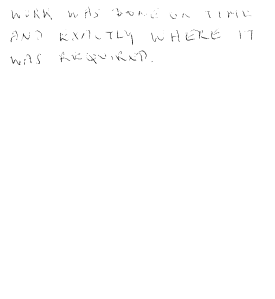 WORK WAS DONE ON TIME
AND EXACTLY WHERE IT
WAS REQUIRED.